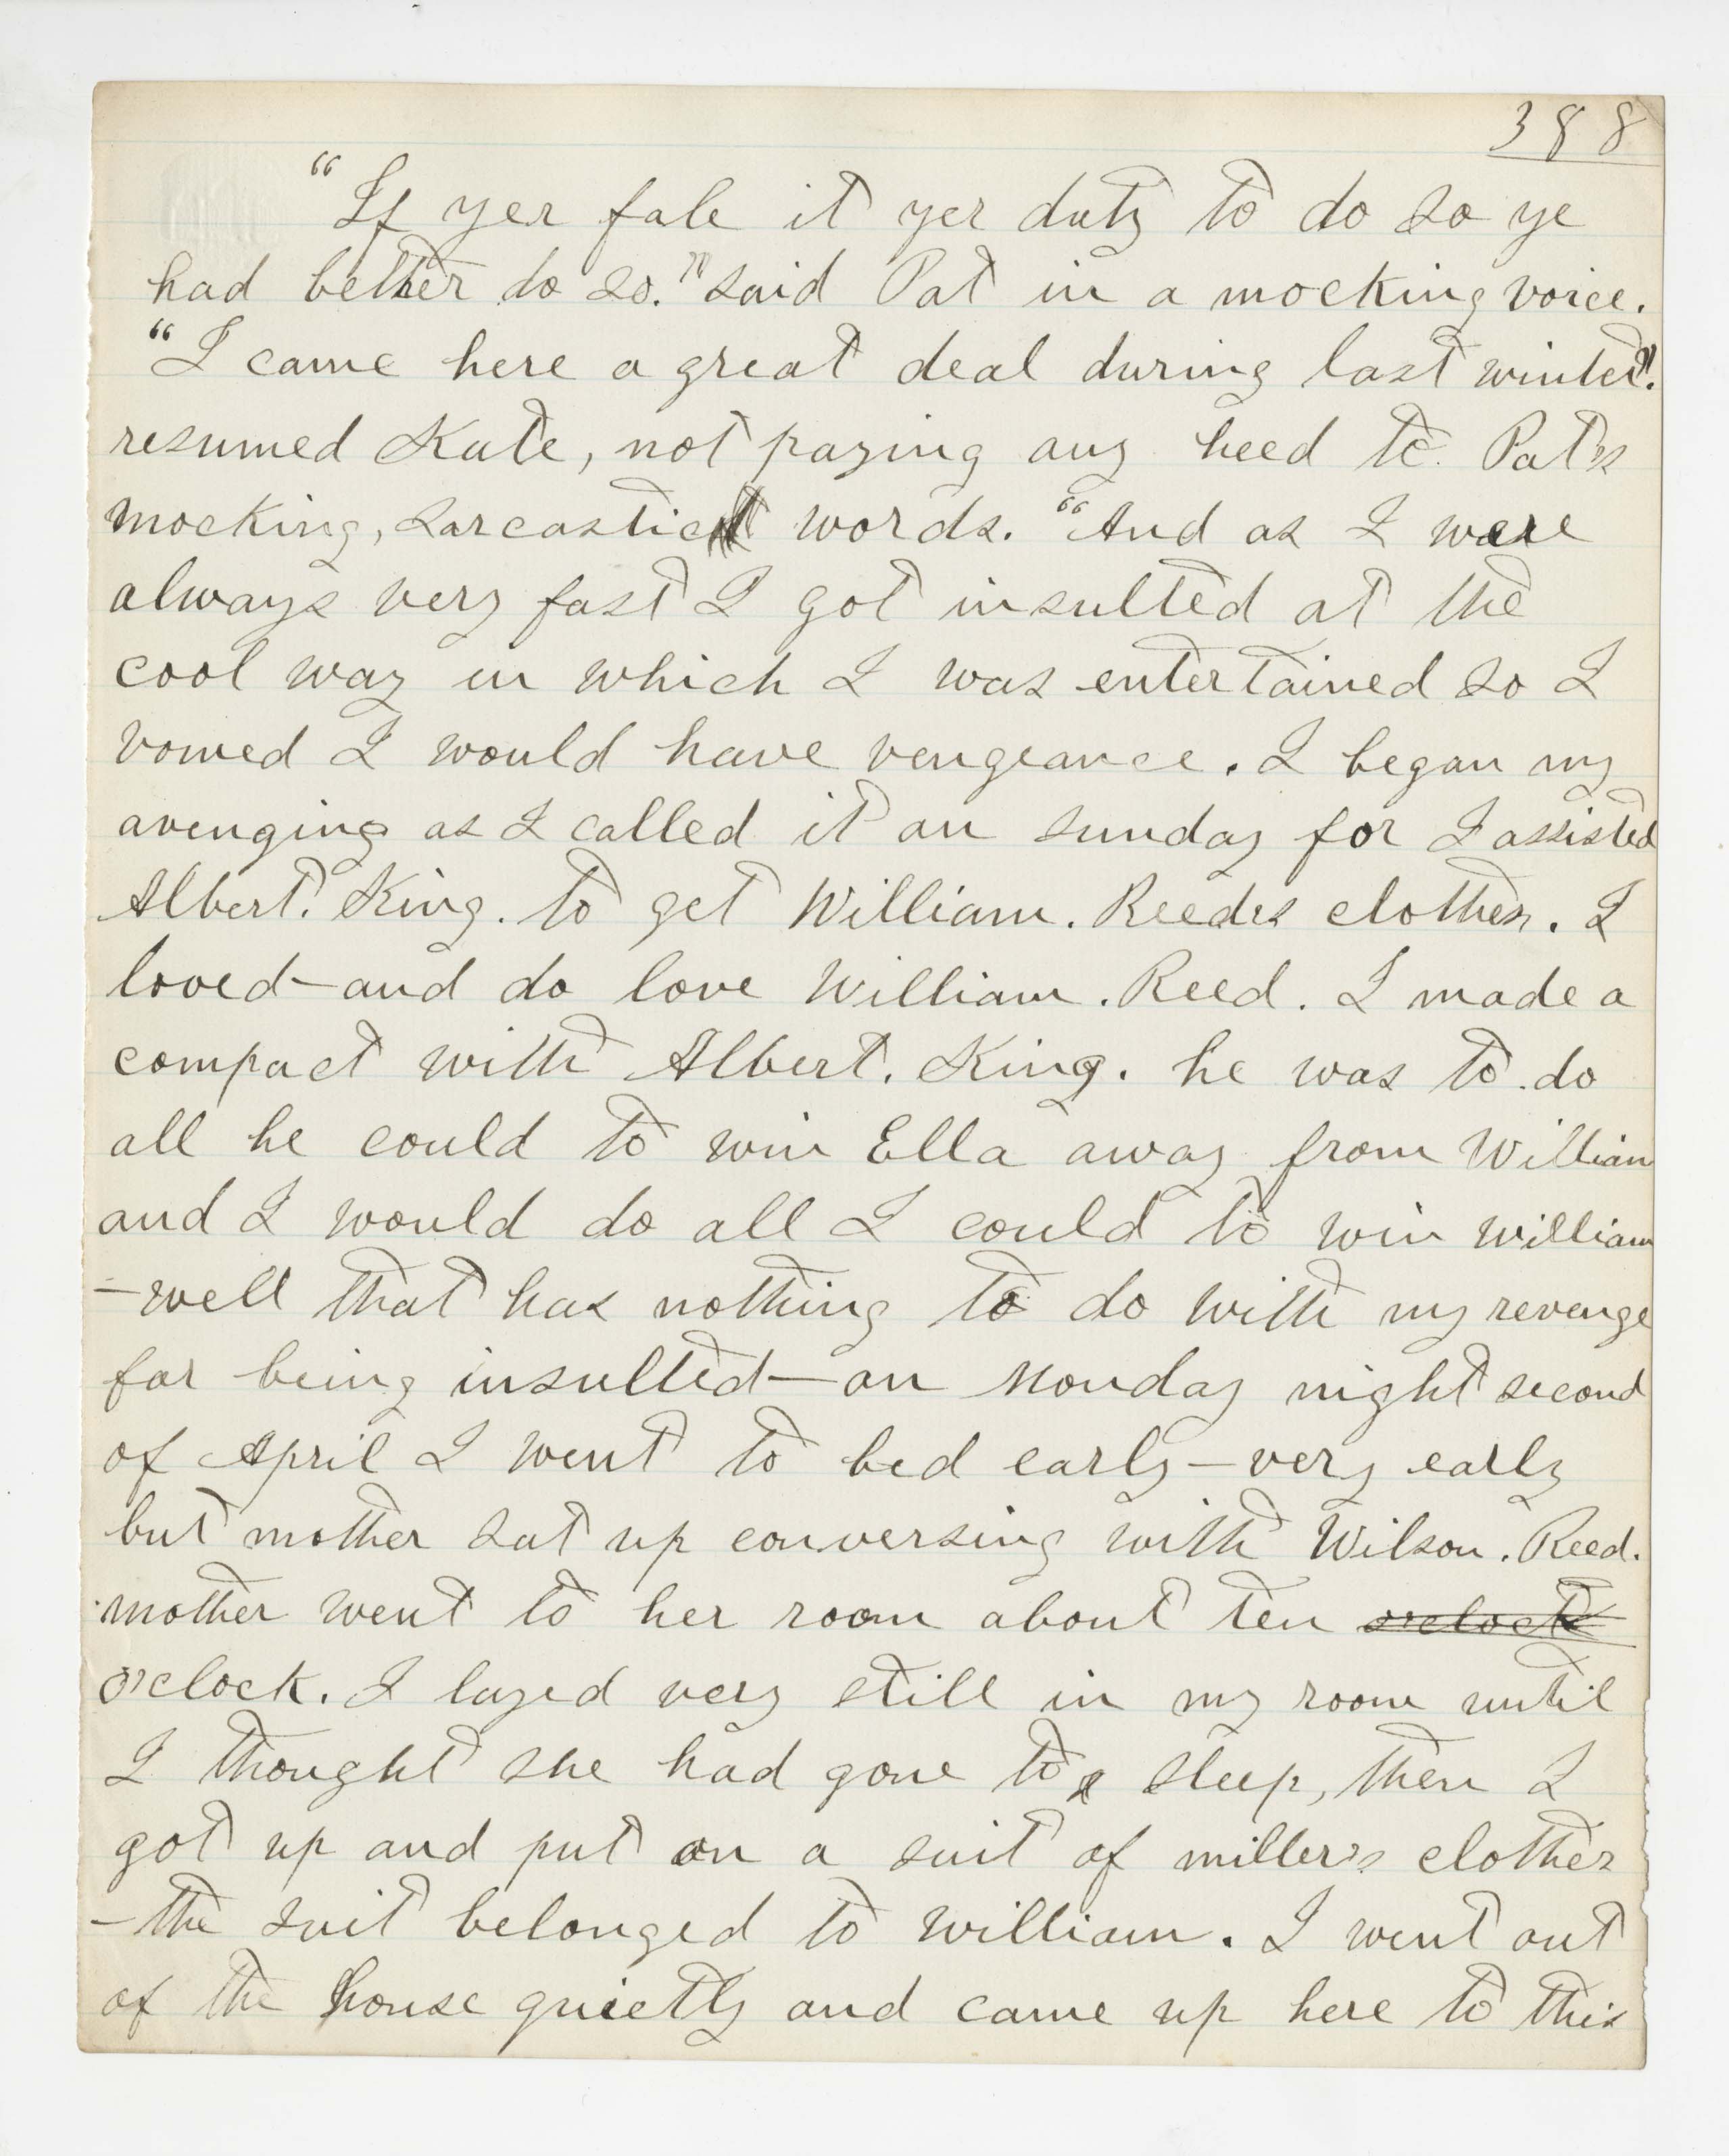 388
"If yer fale it yer duty to do so ye
had better do so." said Pat in a mocking voice.
"I came here a great deal during last winter".
resumed Kate, not paying any heed to Pat's
mocking, sarcastic words. "And as I were
always very fast I got insulted at the
cool way in which I was entertained so I
vowed I would have vengeance. I began my
avenging as I called it on sunday for I assisted
Albert. King. to get William. Reedes clothes. I
loved—and do love William. Reed. I made a
compact with Albert. King. he was to do
all he could to win Ella away from William
and I would do all I could to win William
—well that has nothing to do with my revenge
for being insulted—on Monday night second
of April I went to bed early—very early
but mother sat up conversing with Wilson. Reed.
mother went to her room about ten o'clock
o'clock. I layed very still in my room until
I thought she had gone to sleep, then I
got up and put on a suit of miller's clothes
—the suit belonged to William. I went out
of the house quietly and came up here to this